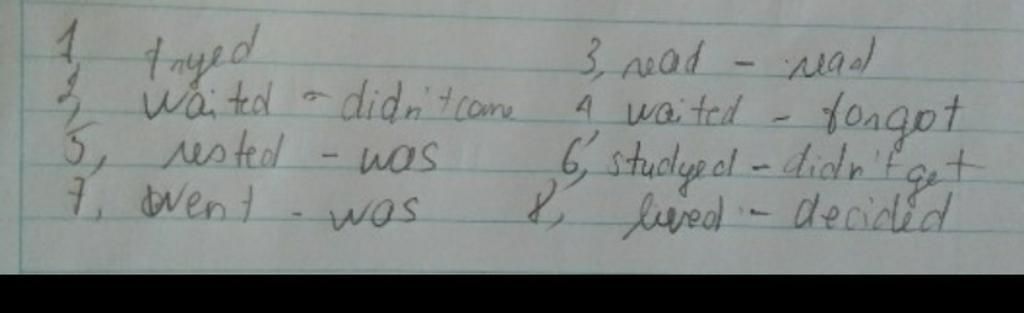 1, tryed 3, read - read
2, waited - didn't come 4, waited - forgot
5, rested - was 6, studyed - didn't get
7, went - was 8, lived - decided